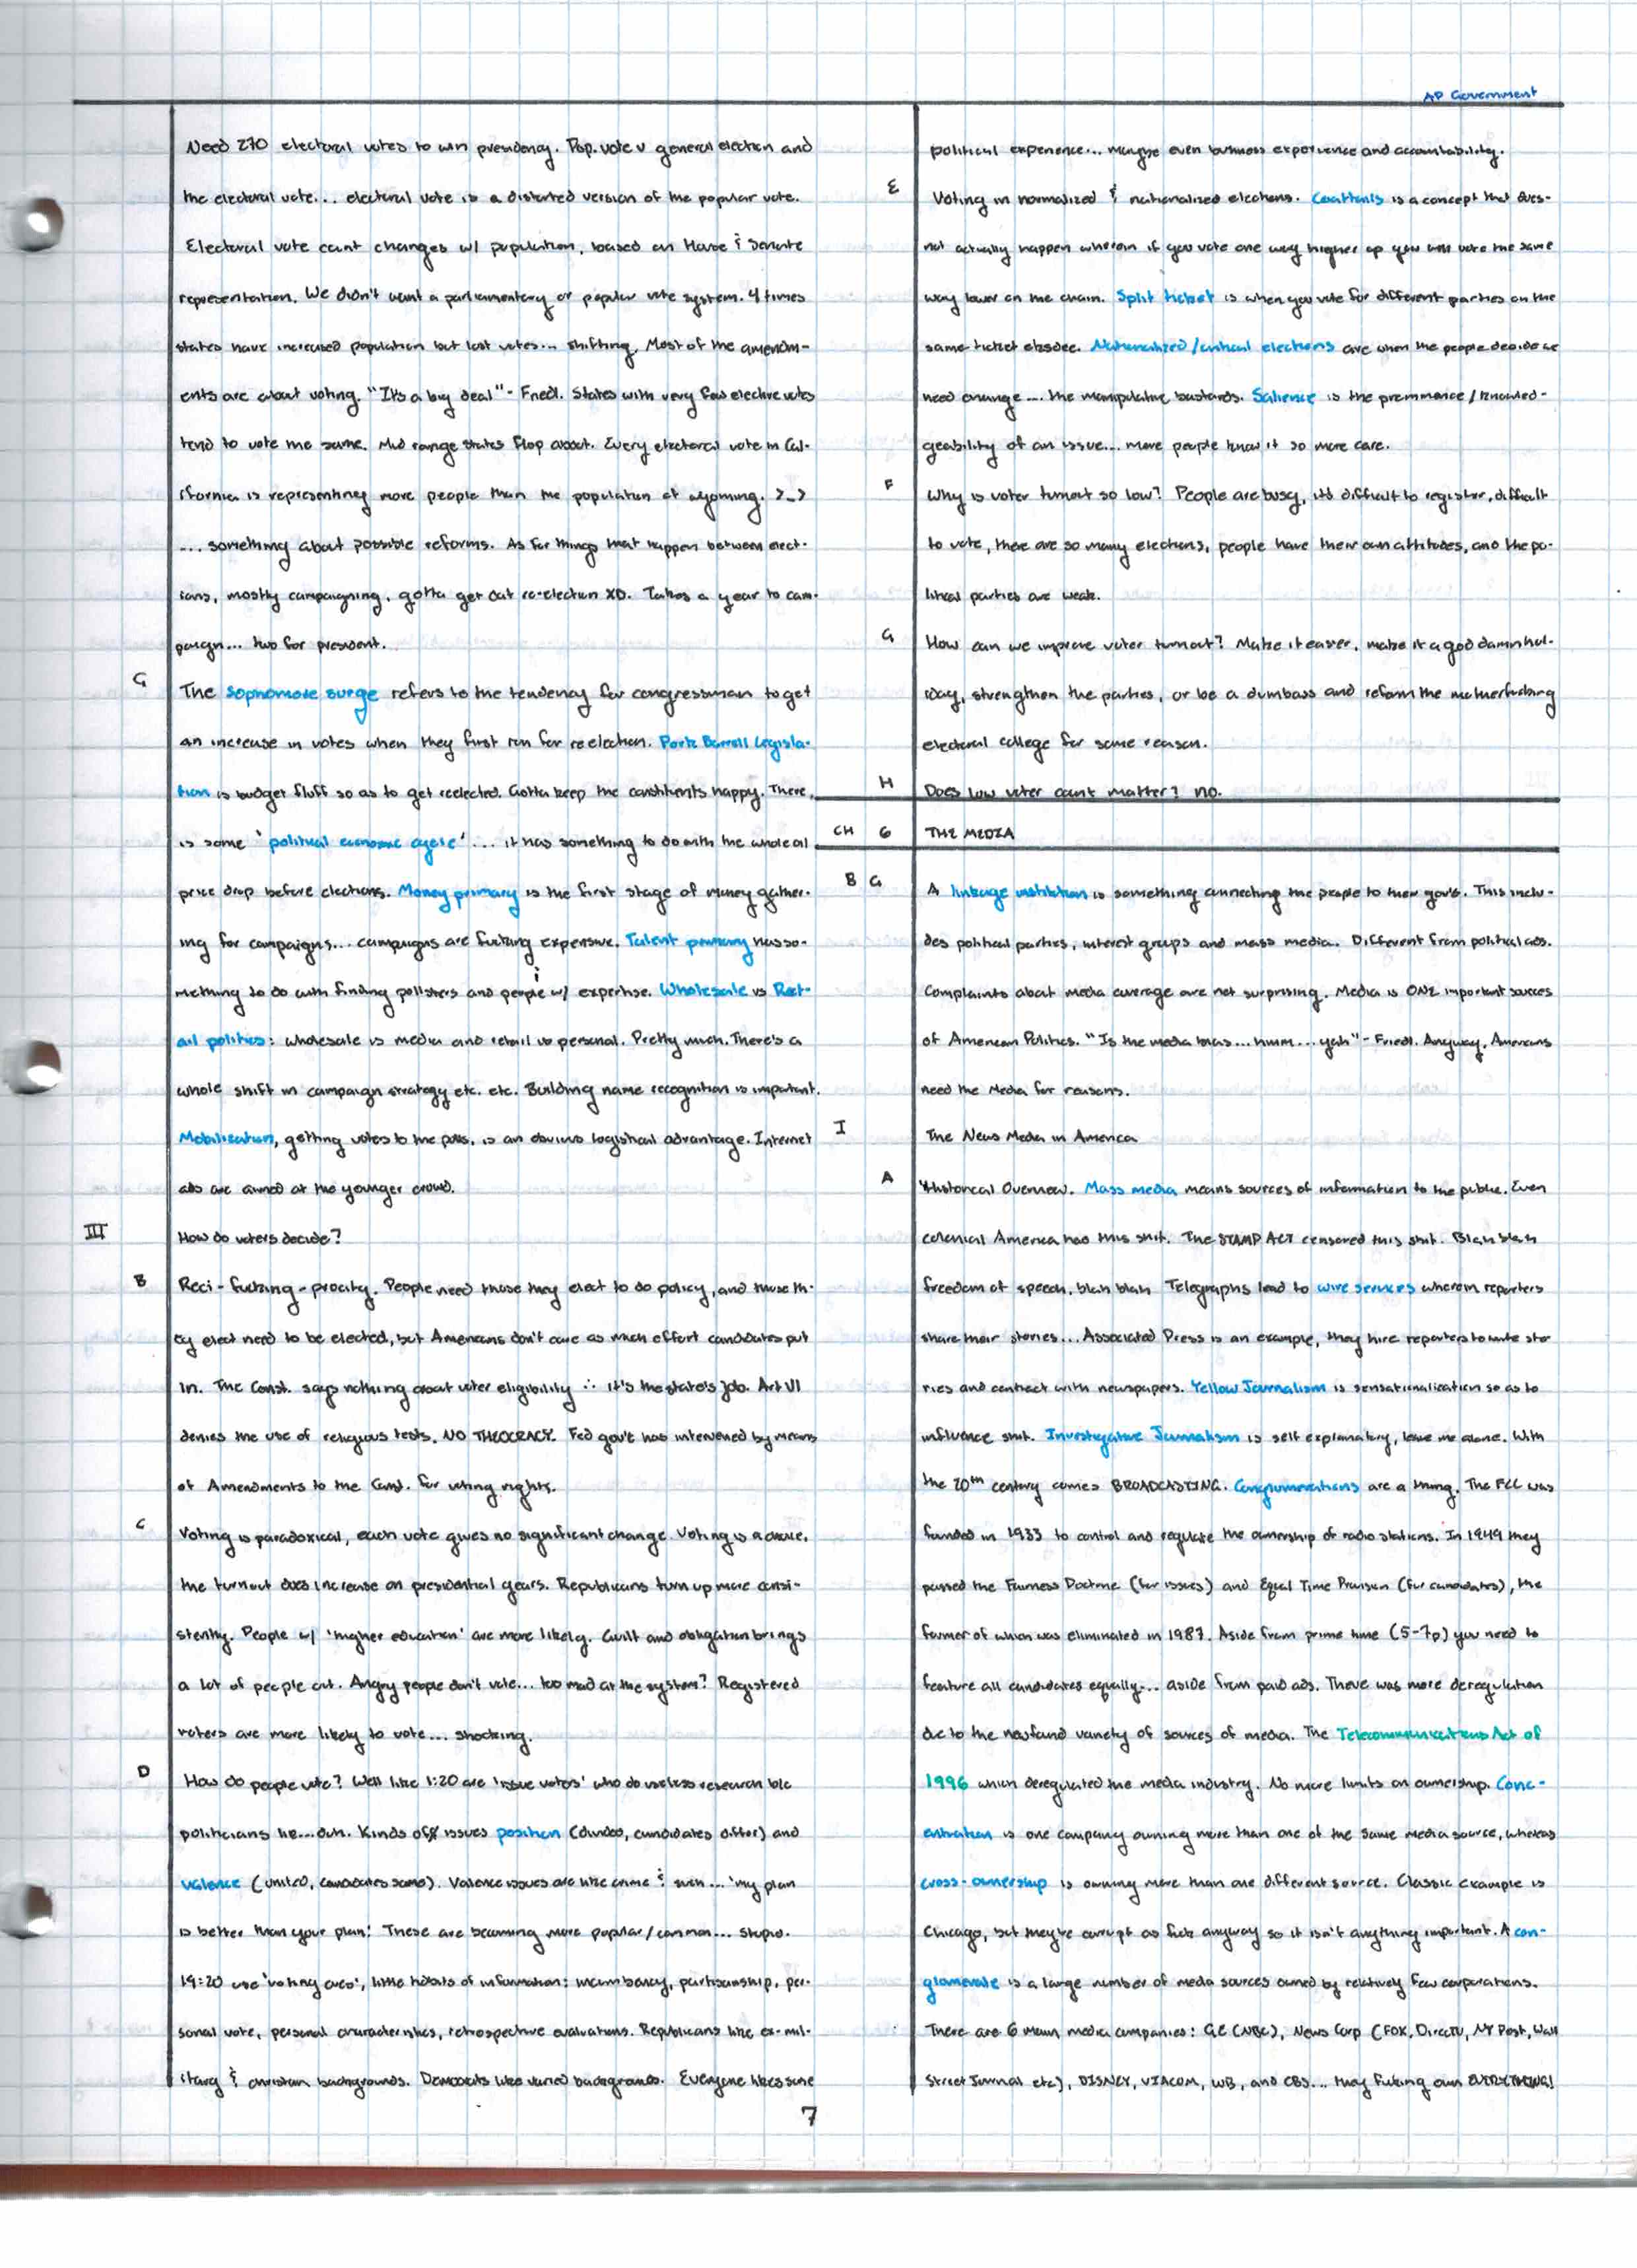 AP Government
Need 270 electoral votes to win presidency. Pop. vote v general election and
the electoral vote... electoral vote is a distorted version of the popular vote.
Electoral vote count changes w/ population, based on House & Senate
representation. We didn't want a parliamentary or popular vote system. 4 times
states have increased population but lost votes... shifting. Most of the amendm-
ents are about voting. "It's a big deal" - Friedl. States with very few elective votes
tend to vote the same. Mid range states flop about. Every electoral vote in Cal-
ifornia is representing more people than the population of wyoming. >_>
... something about possible reforms. As for things that happen between elect-
ions, mostly campaigning, gotta get dat re-election XD. Takes a year to cam-
paign... two for president.
G The sophomore surge refers to the tendency for congressman to get
an increase in votes when they first run for reelection. Pork Barrell Legisla-
tion is budget fluff so as to get reelected. Gotta keep the constituents happy. There
is some 'political economic cycle'... it has something to do with the whole oil
price drop before elections. Money primary is the first stage of money gather-
ing for campaigns... campaigns are fucking expensive. Talent primary has so-
mething to do with finding pollsters and people w/ expertise. Wholesale vs Ret-
ail politics: wholesale is media and retail is personal. Pretty much. There's a
whole shift in campaign strategy etc. etc. Building name recognition is important.
Mobilization, getting votes to the polls, is an obvious logistical advantage. Internet
ads are aimed at the younger crowd.
III How do voters decide?
B Reci-fucking-procity. People need those they elect to do policy, and those th-
ey elect need to be elected, but Americans don't care as much effort candidates put
in. The Const. says nothing about voter eligibility ∴ it's the state's job. Art VI
denies the use of religious tests. NO THEOCRACY. Fed gov't has intervened by means
of Amendments to the Const. for voting rights.
C Voting is paradoxical, each vote gives no significant change. Voting is a choice,
the turnout does increase on presidential years. Republicans turn up more consi-
stently. People w/ 'higher education' are more likely. Guilt and obligation brings
a lot of people out. Angry people don't vote... too mad at the system? Registered
voters are more likely to vote... shocking.
D How do people vote? Well like 1:20 are 'issue voters' who do useless research b/c
politicians lie...duh. Kinds off issues position (divided, candidates differ) and
valence (united, candidates same). Valence issues are like crime & such... 'my plan
is better than your plan!' These are becoming more popular/common... stupid.
19:20 use 'voting cues', little tidbits of information: incumbency, partisanship, per-
sonal vote, personal characteristics, retrospective evaluations. Republicans like ex-mil-
itary & christian backgrounds. Democrats like varied backgrounds. Everyone likes some
7
political experience... maybe even business experience and accountability.
E Voting in normalized & nationalized elections. Coattails is a concept that does-
not actually happen wherein if you vote one way higher up you will vote the same
way lower on the chain. Split ticket is when you vote for different parties on the
same ticket
Nationalized/critical elections are when the people decide we
need change... the manipulative bastards. Salience is the prominence/knowled-
geability of an issue... more people know it so more care.
F Why is voter turnout so low? People are busy, it's difficult to register, difficult
to vote, there are so many elections, people have their own attitudes, and the po-
litical parties are weak.
G How can we improve voter turnout? Make it easier, make it a god damn hol-
iday, strengthen the parties, or be a dumbass and reform the motherfucking
electoral college for some reason.
H Does low voter count matter? no.
CH 6 THE MEDIA
B G A linkage institution is something connecting the people to their gov't. This inclu-
des political parties, interest groups and mass media. Different from political ads.
Complaints about media coverage are not surprising. Media is ONE important sources
of American Politics. "Is the media bias... hmm... yah" - Friedl. Anyway, Americans
need the Media for reasons.
I The News Media in America
A Historical Overview. Mass media means sources of information to the public. Even
colonial America had this shit. The STAMP ACT censored this shit. Blah blah
freedom of speech, blah blah Telegraphs lead to wire services wherein reporters
share their stories... Associated Press is an example, they hire reporters to write sto
ries and contract with newspapers. Yellow Journalism is sensationalization so as to
influence shit. Investigative Journalism is self explanatory, leave me alone. With
the 20th century comes BROADCASTING. Conglomerations are a thing. The FCC was
founded in 1933 to control and regulate the ownership of radio stations. In 1949 they
passed the Fairness Doctrine (for issues) and Equal Time Provision (for candidates), the
former of which was eliminated in 1987. Aside from prime time (5-7p) you need to
feature all candidates equally... aside from paid ads. There was more deregulation
due to the newfound variety of sources of media. The Telecommunications Act of
1996 which deregulated the media industry. No more limits on ownership. Conc-
entration is one company owning more than one of the same media source, whereas
cross-ownership is owning more than one different source. Classic example is
Chicago, but they're corrupt as fuck anyway so it isn't anything important. A con-
glomerate is a large number of media sources owned by relatively few corporations.
There are 6 main media companies: GE (NBC), News Corp (FOX, DirecTV, NY Post, Wall
Street Journal etc), DISNEY, VIACOM, WB, and CBS... they fuking own EVERYTHING!